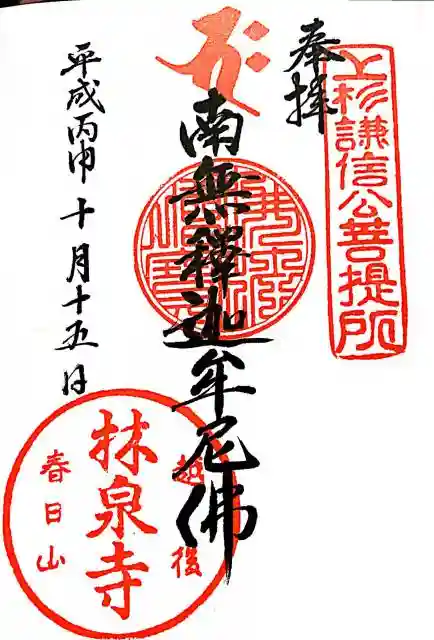 上杉謙信公菩提所
奉拝
南無釋迦牟尼佛
平成丙申十月十五日
越後
林泉寺
春日山